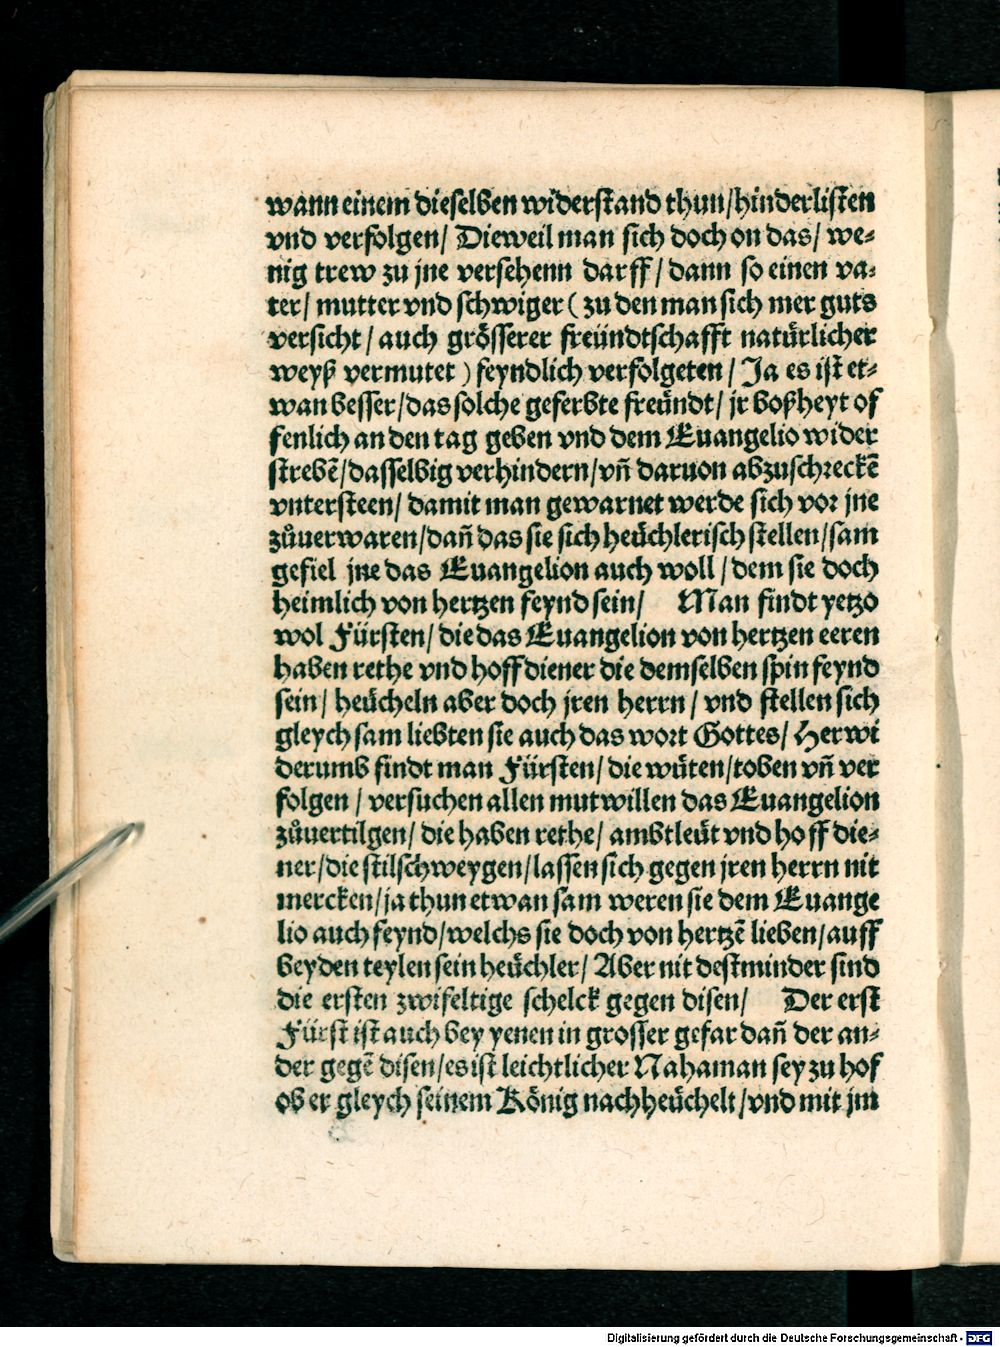 wann einem dieselben widerstand thun/hinderlisten
vnd verfolgen/ Dieweil man sich doch on das/ we⸗
nig trew zu jne versehenn darff/ dann so einen va⸗
ter/ mutter vnd schwiger ( zu den man sich mer guts
versicht/ auch grösserer freündtschafft natürlicher
weyß vermutet ) feyndlich verfolgeten/ Ja es ist et⸗
wan besser/das solche geferbte freündt/ jr boßheyt of
fenlich an den tag geben vnd dem Euangelio wider
strebẽ/dasselbig verhindern/vñ daruon abzuschreckẽ
vntersteen/ damit man gewarnet werde sich vor jne
zůuerwaren/dañ das sie sich heüchlerisch stellen/sam
gefiel jne das Euangelion auch woll/dem sie doch
heimlich von hertzen feynd sein/ Man findt yetzo
wol Fürsten/ die das Euangelion von hertzen eeren
haben rethe vnd hoffdiener die demselben spin feynd
sein/ heücheln aber doch jren herrn/ vnd stellen sich
gleych sam liebten sie auch das wort Gottes/ Herwi
derumb findt man Fürsten/ die wüten/toben vñ ver
folgen/ versuchen allen mutwillen das Euangelion
zůuertilgen/ die haben rethe/ ambtleüt vnd hoff die⸗
ner/die stilschweygen/lassen sich gegen jren herrn nit
mercken/ja thun etwan sam weren sie dem Euange
lio auch feynd/welchs sie doch von hertzẽ lieben/auff
beyden teylen sein heüchler/ Aber nit destminder sind
die ersten zwifeltige schelck gegen disen/ Der erst
Fürst ist auch bey yenen in grosser gefar dañ der an⸗
der gegẽ disen/es ist leichtlicher Nahaman sey zu hof
ob er gleych seinem König nachheüchelt/vnd mit jm
Digitalisierung gefördert durch die Deutsche Forschungsgemeinschaft - DFG